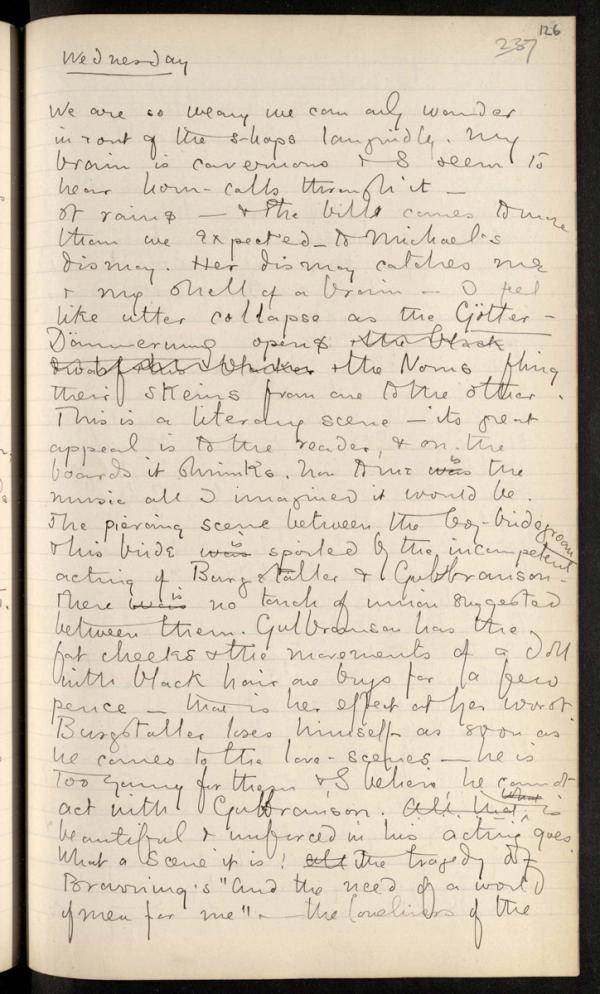 126
237
Wednesday
We are so weary we can only wander
in front of the shops languidly. My
brain is cavernous & I seem to
hear horn-calls through it —
It rains — & the bills comes to more
than we expected — to Michael's
dismay. Her dismay catches me
& my shell of a brain — I feel
like utter collapse as the Götter-
Dämmerung opens & the black
& the Norns fling
their skeins from one to the other.
This is a literary scene — its great
appeal is to the reader, & on the
boards it shrinks. Nor to me was is the
music all I imagined it would be.
The piercing scene between the boy-bridegroom
& his bride was is spoiled by the incompetent
acting of Burgstaller & Gulbranson —
There was is no touch of union suggested
between them. Gulbranson has the
fat cheeks & the movements of a doll
with black hair one buys for a few
pence — that is her effect at her worst.
Burgstaller loses himself as soon as
he comes to the love-scenes — he is
too young for them & I believe he cannot
act with Gulbranson. All that what is
beautiful & unforced in his acting goes.
What a scene it is! all The tragedy of
Browning's "And the need of a world
of men for me" — the loneliness of the